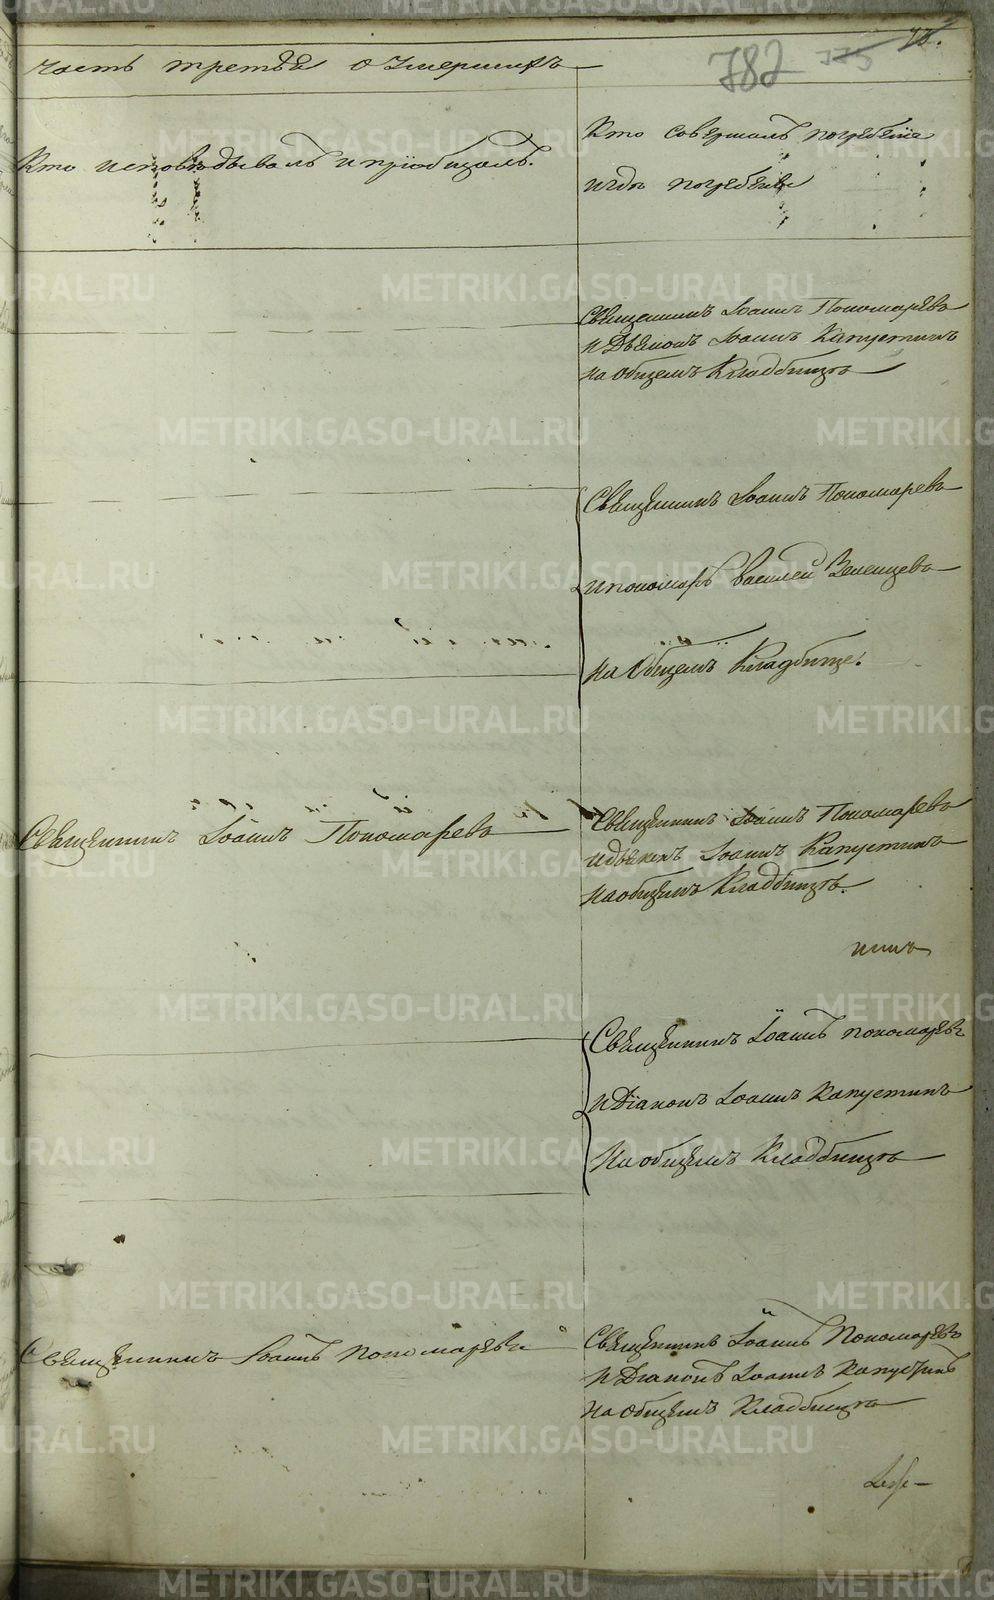 782
Часть третья о Умершихъ
Кто исповѣдывалъ и пріобщалъ.
Кто совершалъ погребеніе
и гдѣ погребены
Священникъ Іоаннъ Пономаревъ
и Дьяконъ Іоаннъ Капустинъ
на общемъ Кладбищѣ
Священникъ Іоаннъ Пономаревъ
и пономарь Василей Зеленцевъ
на Общемъ Кладбище.
Священникъ Іоаннъ Пономаревъ
Священникъ Іоаннъ Пономаревъ
и дьяконъ Іоаннъ Капустинъ
на общемъ Кладбищѣ.
Священникъ Іоаннъ пономаревъ
и Діаконъ Іоаннъ Капустинъ
На общемъ Кладбищѣ
Священникъ Іоаннъ Пономаревъ
Священникъ Іоаннъ Пономаревъ
и Діаконъ Іоаннъ Капустинъ
на Общемъ Кладбищѣ
METRIKI.GASO-URAL.RU